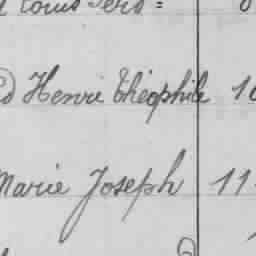 Louis Ferd =
d Henri théophile 10
Marie Joseph 11